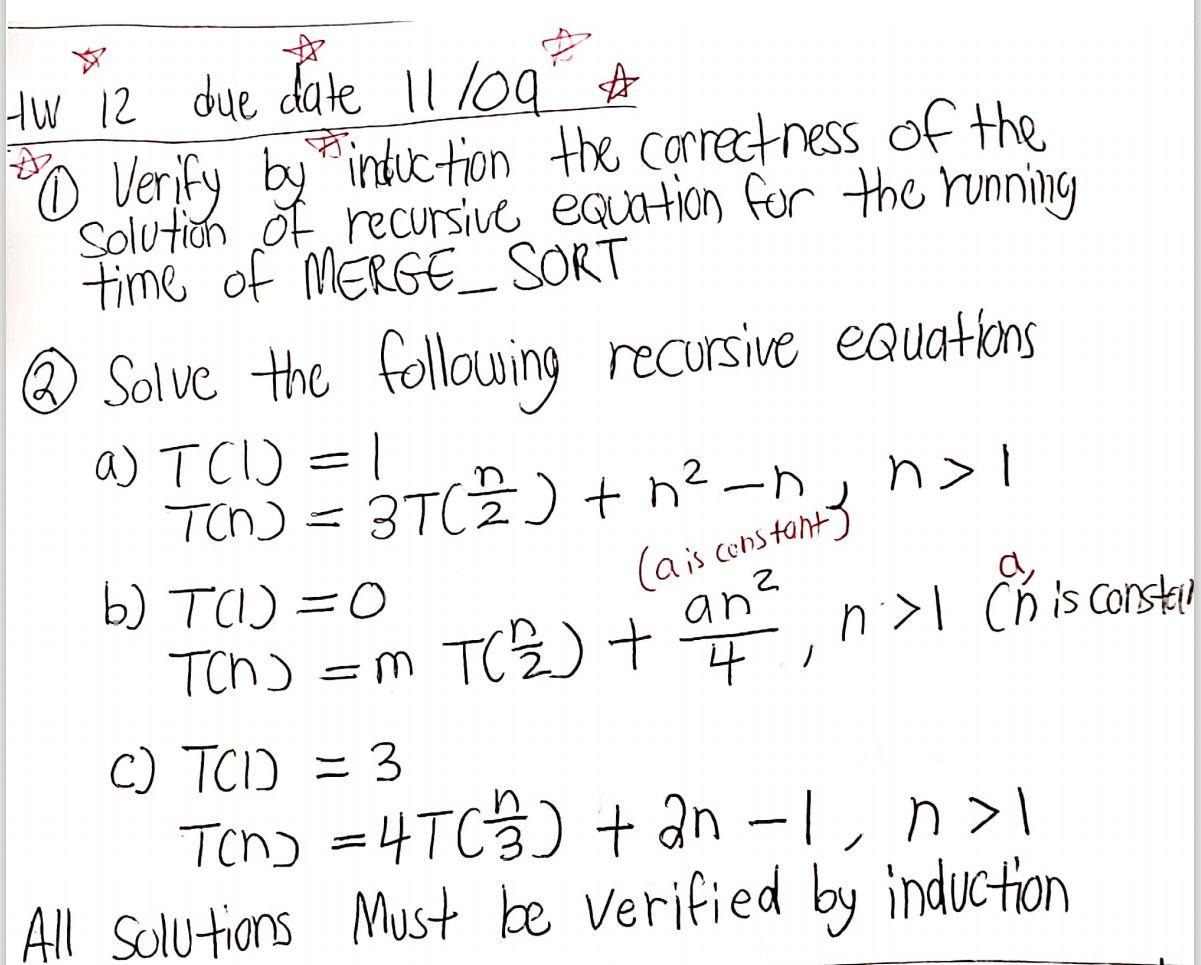 HW 12 due date 11/09
① Verify by induction the correctness of the
solution of recursive equation for the running
time of MERGE_SORT
② Solve the following recursive equations
a) T(1) = 1
T(n) = 3T(n/2) + n² - n, n > 1
(a is constant)
b) T(1) = 0
T(n) = m T(n/2) + an²/4, n > 1 (a, n is consta
c) T(1) = 3
T(n) = 4T(n/3) + 2n - 1, n > 1
All Solutions Must be verified by induction